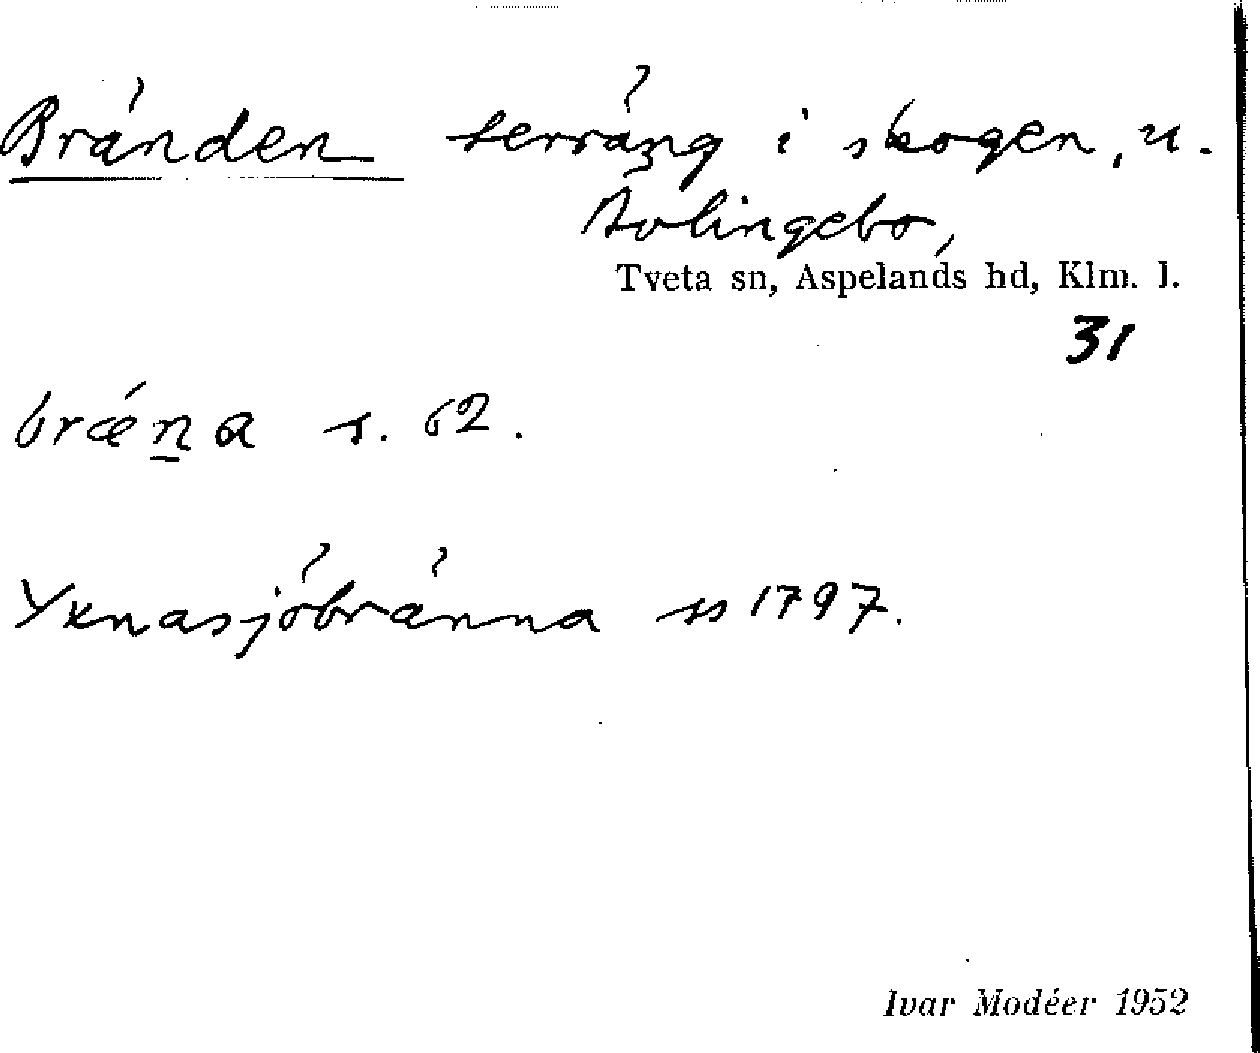 Bränden terräng i skogen, u.
Avlingebo,
Tveta sn, Aspelands hd, Klm. l.
31
bræ´n̲a s. 62.
Yxnasjöbränna ss 1797.
Ivar Modéer 1952